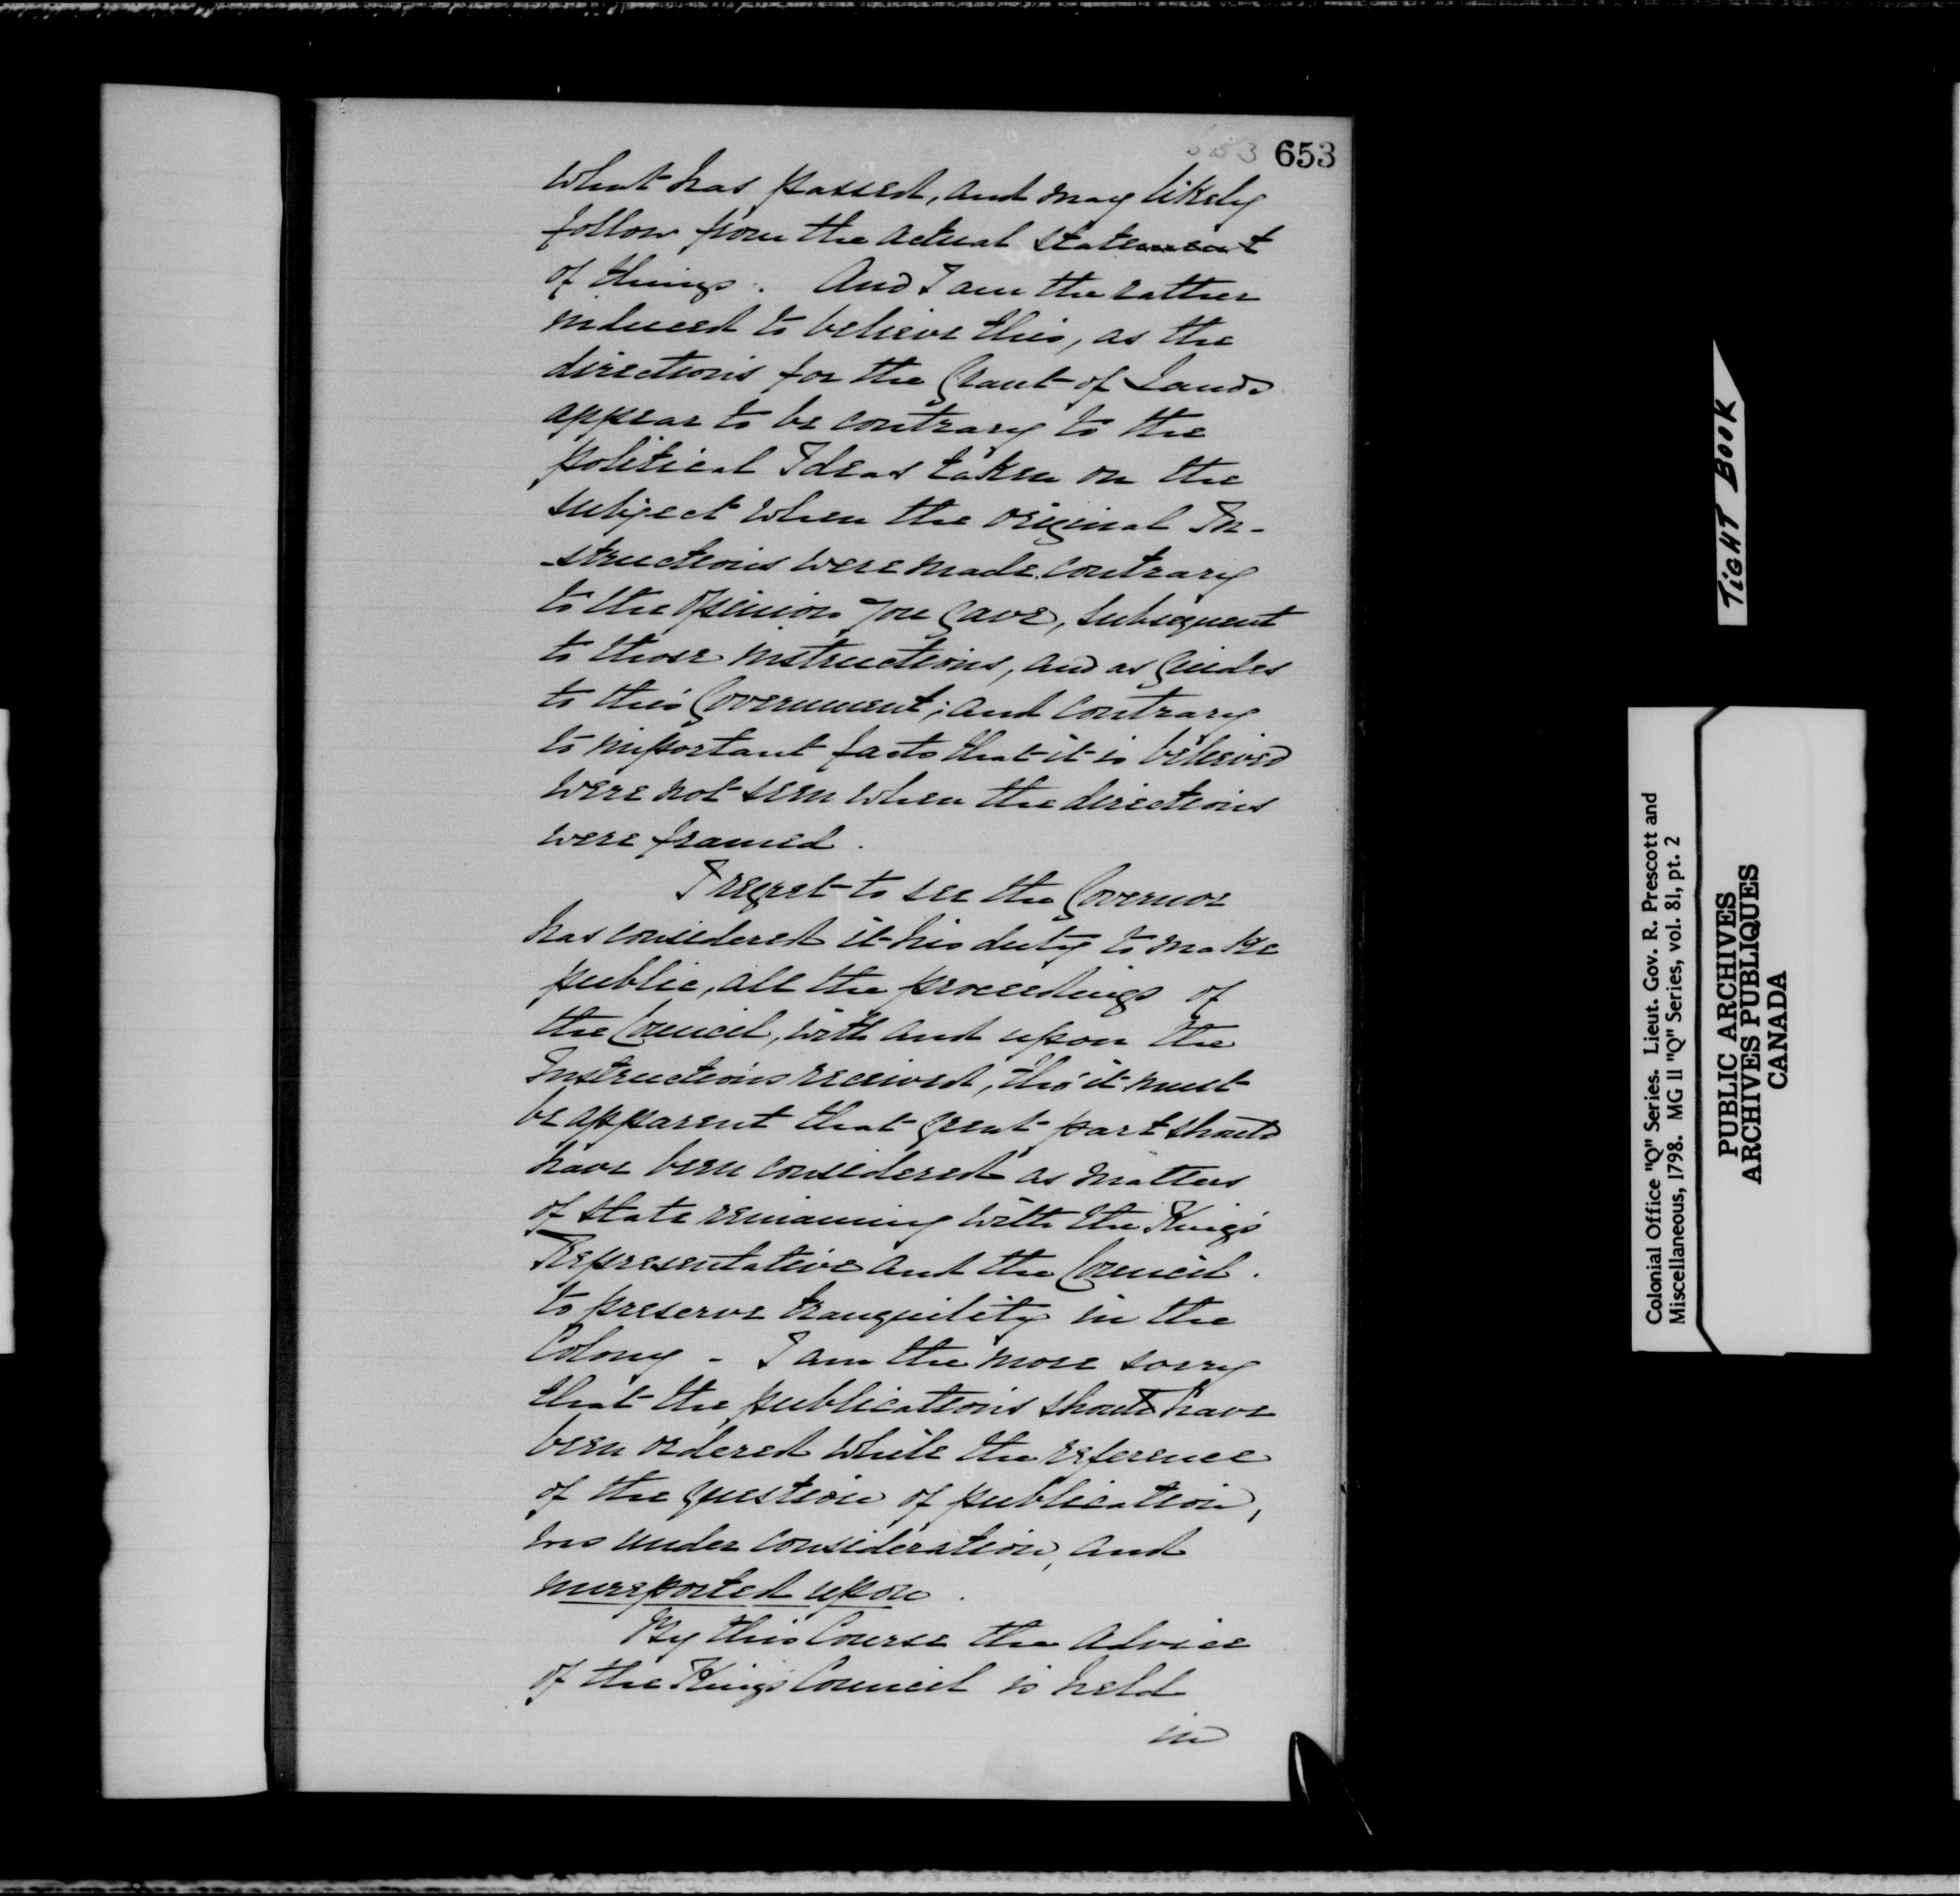 653 653
what has passed, and may likely
follow from the actual statement
of things. And I am the rather
induced to believe this, as the
directions for the Grant of Lands
appear to be contrary to the
political Ideas taken on the
subject when the original In-
-structions were made, contrary
to the opinion you gave, subsequent
to those instructions, and as guides
to this Government; and contrary
to important facts that it is believed
were not seen when the directions
were framed.
I regret to see the Governor
has considered it his duty to make
public, all the proceedings of
the Council, with and upon the
Instructions received, tho' it must
be apparent that great part should
have been considered as matters
of state remaining with the King's
Representative and the Council.
to preserve tranquility in the
Colony - I am the more sorry
that the publications should have
been ordered while the reference
of the question of publication,
was under consideration, and
unreported upon.
By this Course the advice
of the King's Council is held
in
TIGHT BOOK
Colonial Office "Q" Series. Lieut. Gov. R. Prescott and
Miscellaneous, 1798. MG 11 "Q" Series, vol. 81, pt. 2
PUBLIC ARCHIVES
ARCHIVES PUBLIQUES
CANADA